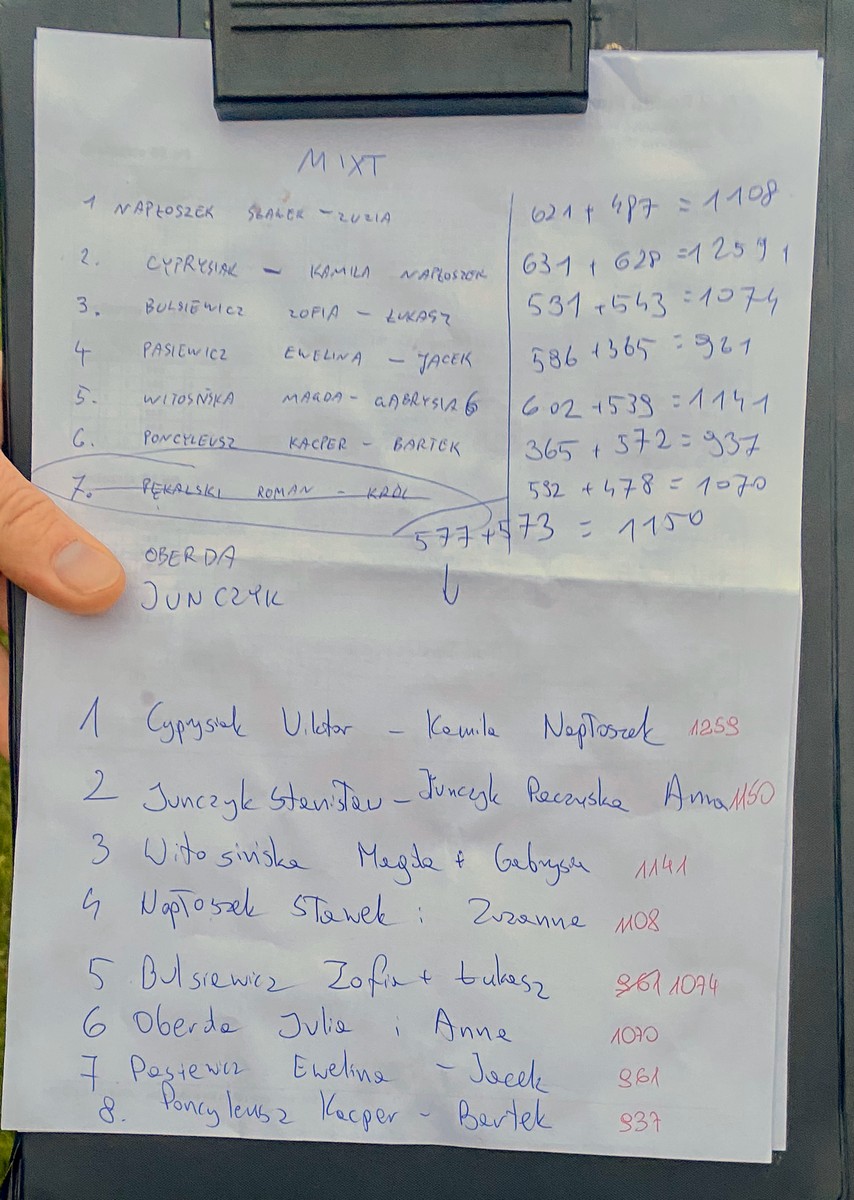 MIXT
1 NAPŁOSZEK SŁAWEK – ZUZIA 621 + 487 = 1108
2. CYPRYSIAK – KAMILA NAPŁOSZEK 631 + 628 = 1259
3. BULSIEWICZ ZOFIA – ŁUKASZ 531 + 543 = 1074
4 PASIEWICZ EWELINA – JACEK 596 + 365 = 961
5. WITOSIŃSKA MAGDA – GABRYSIA 602 + 539 = 1141
6. PONCYLEUSZ KACPER – BARTEK 365 + 572 = 937
7. PĘKALSKI ROMAN – KAROL 592 + 478 = 1070
577 + 573 = 1150
OBERDA
JUNCZYK
1 Cyprysiak Viktor – Kamila Napłoszek 1259
2 Junczyk Stanisław – Junczyk Raczyńska Anna 1150
3 Witosińska Magda + Gabrysia 1141
4 Napłoszek Sławek i Zuzanna 1108
5 Bulsiewicz Zofia + Łukasz 961 1074
6 Oberda Julia i Anna 1070
7 Pasiewicz Ewelina – Jacek 961
8. Poncyleusz Kacper – Bartek 937